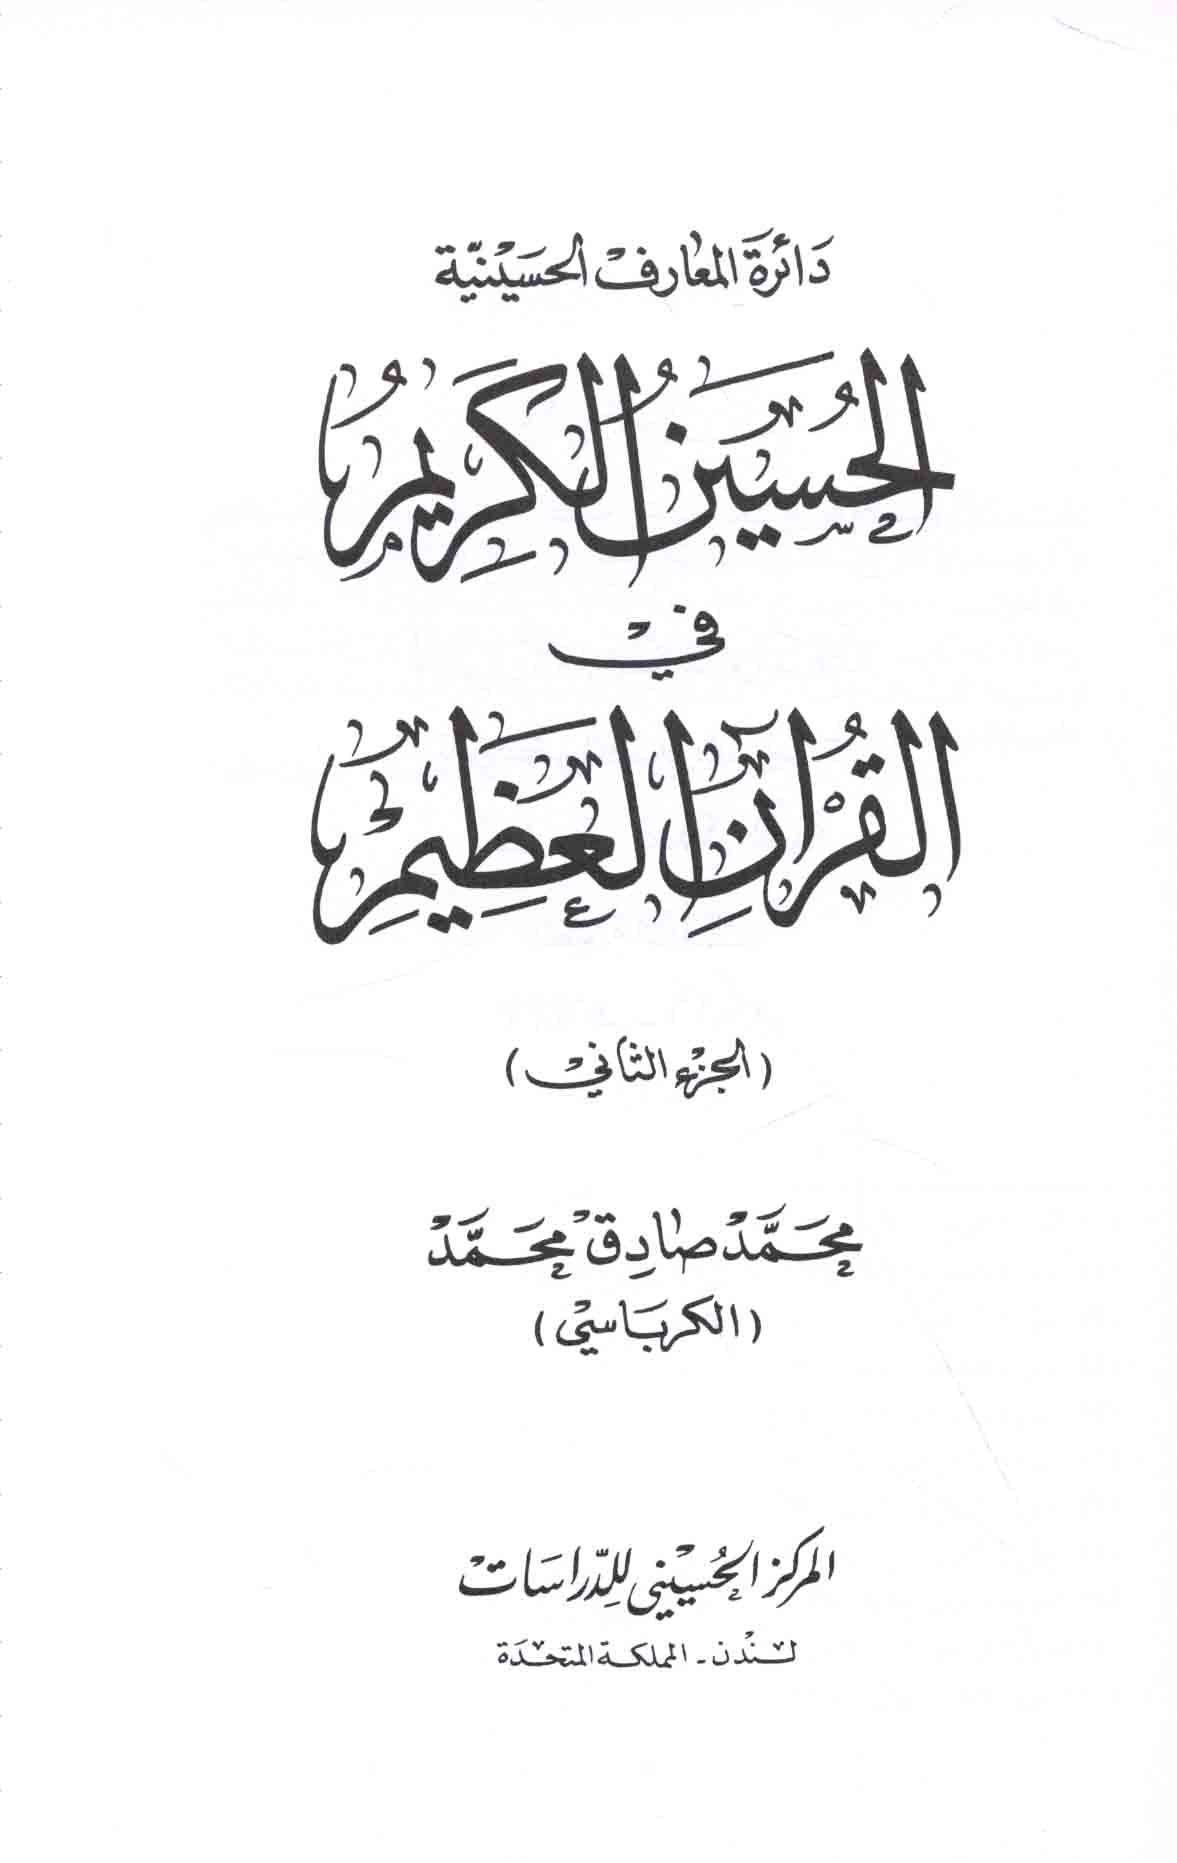 دائرة المعارف الحسينية
الحسين الكريم
في
القرآن العظيم
(الجزء الثاني)
محمد صادق محمد
(الكرباسي)
المركز الحسيني للدراسات
لندن - المملكة المتحدة